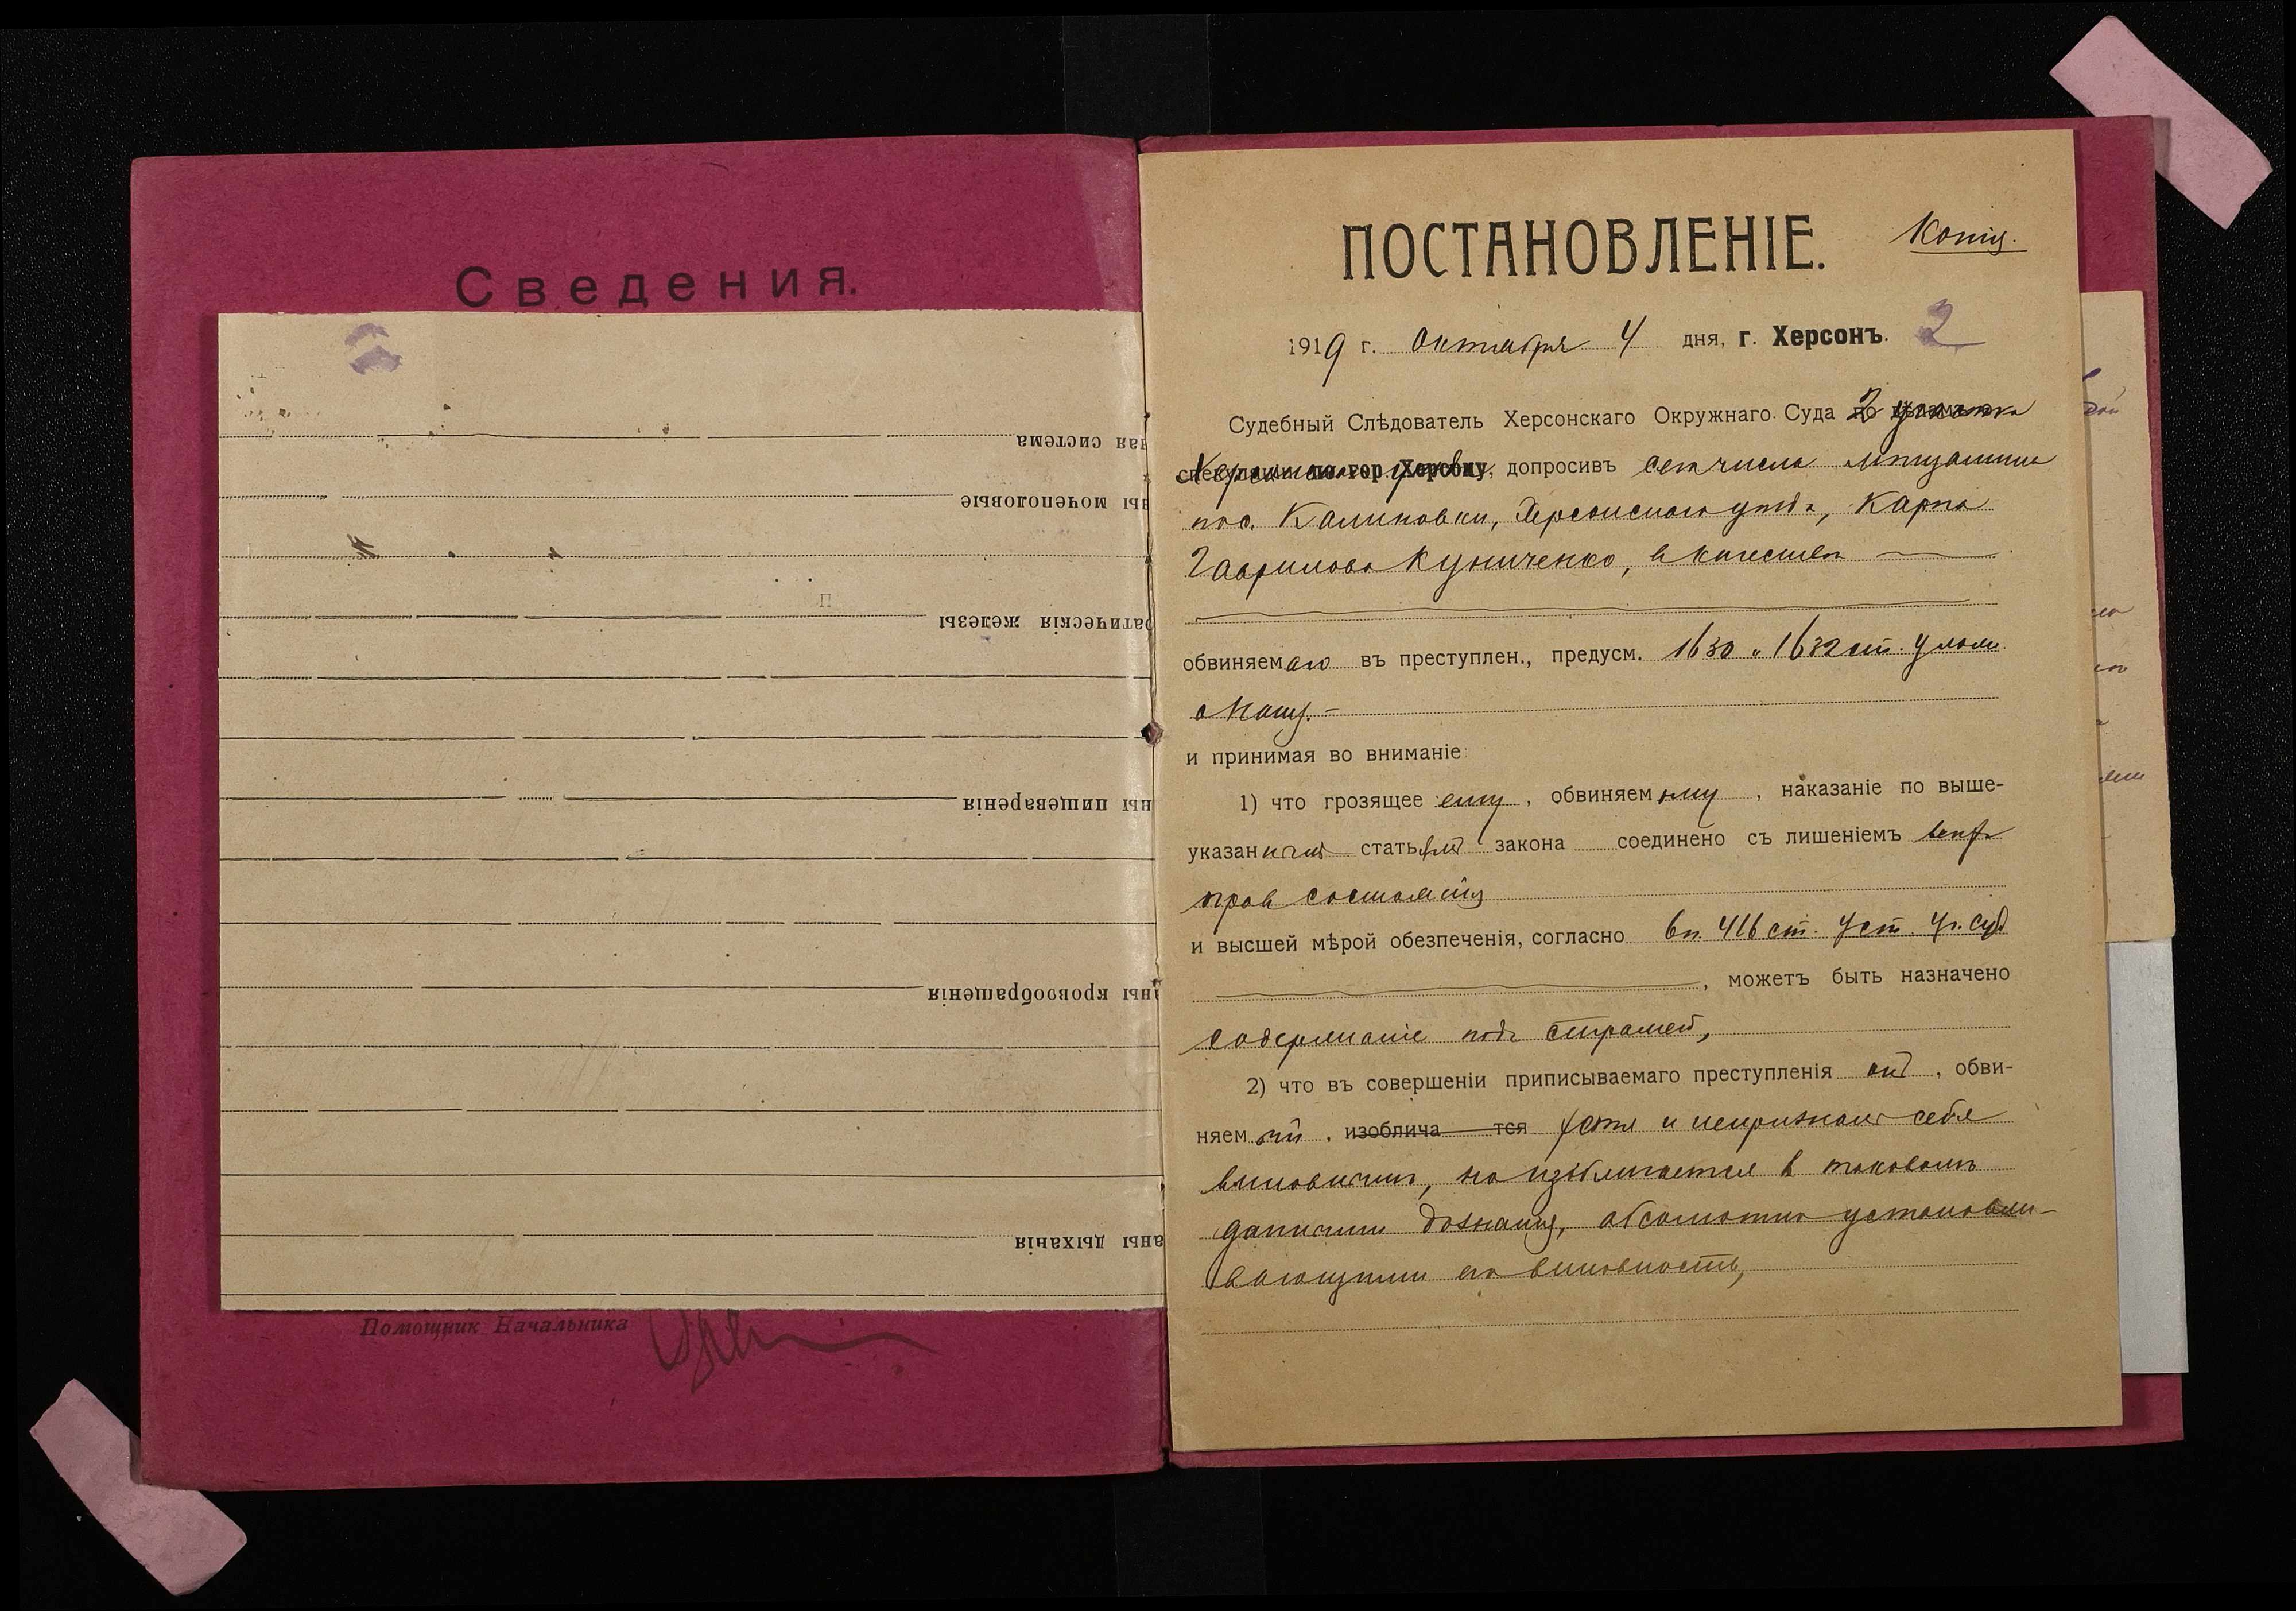 Сведения.
ная система
ны мочеполовые
атическія железы
ны пищеваренія
ны кровообращенія
аны дыханія
Помощник Начальника
ПОСТАНОВЛЕНІЕ.
Копія.
1919 г. Октября 4 дня, г. Херсонъ. 2
Судебный Слѣдователь Херсонскаго Окружнаго Суда 2 участка
Херсонскаго уезда, допросивъ сего числа мѣщанина
пос. Калиновки, Херсонского уезда, Карпа
Гаврилова Куниченко, в качестве
обвиняемаго въ преступлен., предусм. 1630 и 1632 ст. Улож.
о Наказ.
и принимая во вниманіе:
1) что грозящее ему, обвиняемому, наказаніе по выше-
указанным статьям закона соединено съ лишеніемъ всѣхъ
прав состоянія
и высшей мѣрой обезпеченія, согласно 6 п. 416 ст. Уст. Уг. Суд
, можетъ быть назначено
содержание подъ стражей,
2) что въ совершеніи приписываемаго преступленія он, обви-
няемый, изоблича тся хотя и непризнал себя
виновным, но изобличается в таковомъ
данными дознанія, абсолютно устанавли-
вающими его виновность,